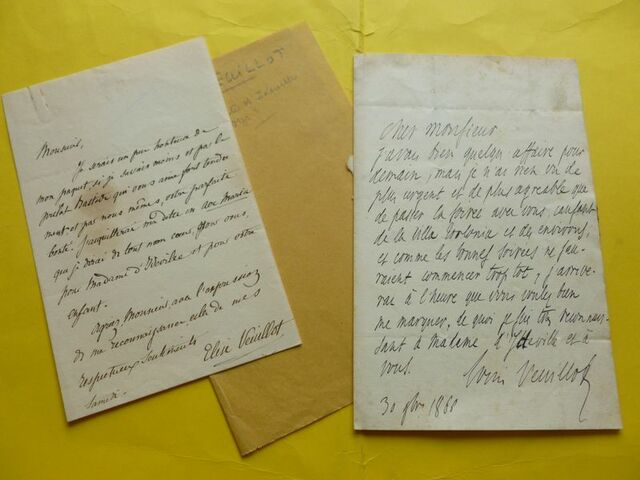 Monsieur,
Je serais un peu honteux de
mon paquet, si je savais moins et pas le
prélat Bastide qui vous aime fort tendre
ment et pas nous mêmes, votre parfaite
bonté. J'acquitterai ma dette en ave Maria
que je dirai de tout mon coeur, pour vous,
pour Madame d'Ideville et pour votre
enfant.
agréez, Monsieur, avec l'expression
de ma reconnaissance, celle de mes
respectueux sentiments
Elise Veuillot
Samedi.
VEUILLOT
Cher monsieur,
j'avais bien quelqu'affaire pour
demain, mais je n'ai rien vu de
plus urgent et de plus agréable que
de passer la soirée avec vous, causant
de la villa et des environs;
et comme les bonnes soirées ne sau-
raient commencer trop tôt, j'arrive-
rai à l'heure que vous voulez bien
me marquer, de quoi je suis très reconnais-
sant à Madame d'Ideville et à
vous.
Louis Veuillot
30 9bre 186